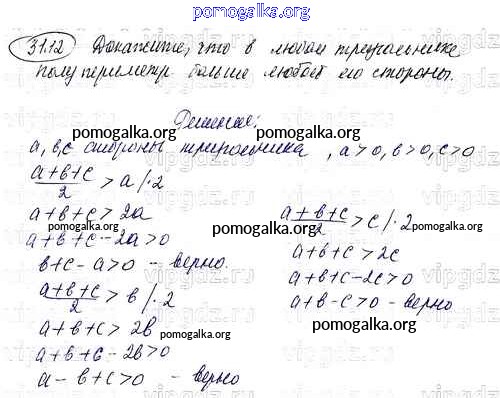 pomogalka.org
31.12 Докажите, что в любом треугольнике
полупериметр больше любой его стороны.
Решение:
pomogalka.org pomogalka.org
a, b, c стороны треугольника, a>0, b>0, c>0
pomogalka.org pomogalka.org
(a+b+c)/2 > a |·2
a+b+c > 2a
a+b+c-2a>0
b+c-a>0 - верно.
(a+b+c)/2 > b |·2
a+b+c > 2b
a+b+c-2b>0
a-b+c>0 - верно
(a+b+c)/2 > c |·2
a+b+c > 2c
a+b+c-2c>0
a+b-c>0 - верно
pomogalka.org pomogalka.org
pomogalka.org pomogalka.org
pomogalka.org
vipgdz.ru